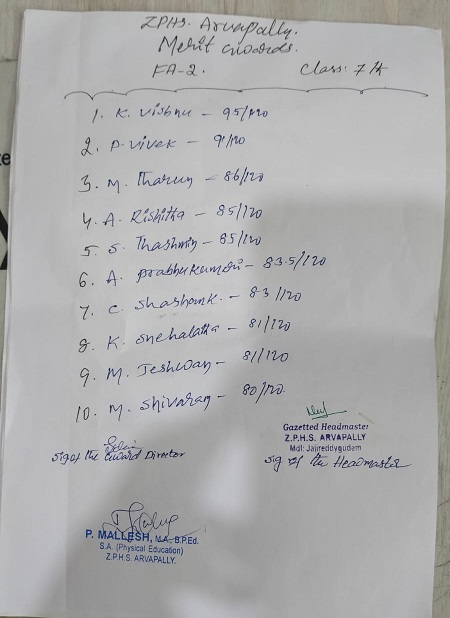 ZPHS. Arvapally.
Merit awards.
FA-2. Class: 7th
1. K. Vishnu - 95/120
2. P. Vivek - 91/120
3. M. Tharun - 86/120
4. A. Rishitha - 85/120
5. S. Thashmin - 85/120
6. A. prabhukumari - 83.5/120
7. C. Shashank. - 83/120
8. K. Snehalatha - 81/120
9. M. Jeshwan - 81/120
10. M. Shivaram - 80/120.
Gazetted Headmaster
Z.P.H.S. ARVAPALLY
Mdl: Jajireddygudem
sig of the Award Director
sig of the Headmaster
P. MALLESH, M.A., B.P.Ed.
S.A. (Physical Education)
Z.P.H.S. ARVAPALLY.